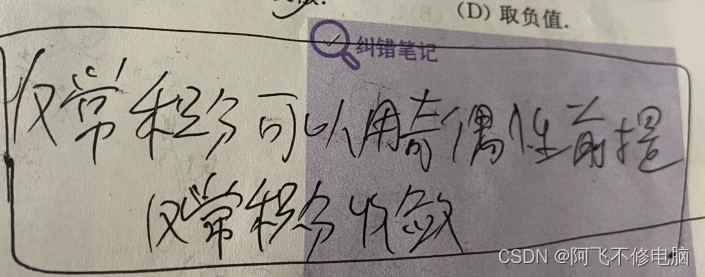 (D) 取负值.
纠错笔记
反常积分可以用奇偶性前提
反常积分收敛
CSDN @阿飞不修电脑